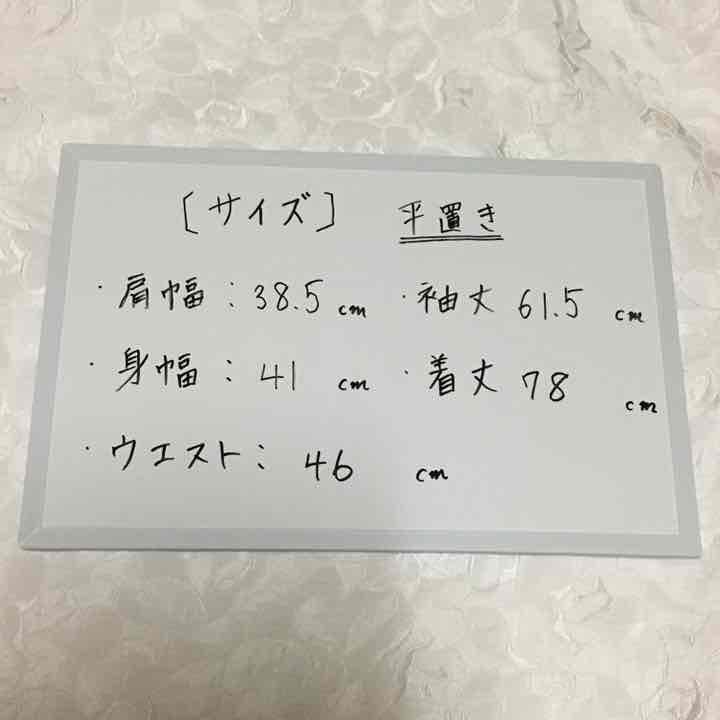 ［サイズ］ 平置き
・肩幅：38.5 cm ・袖丈 61.5 cm
・身幅：41 cm ・着丈 78 cm
・ウエスト：46 cm